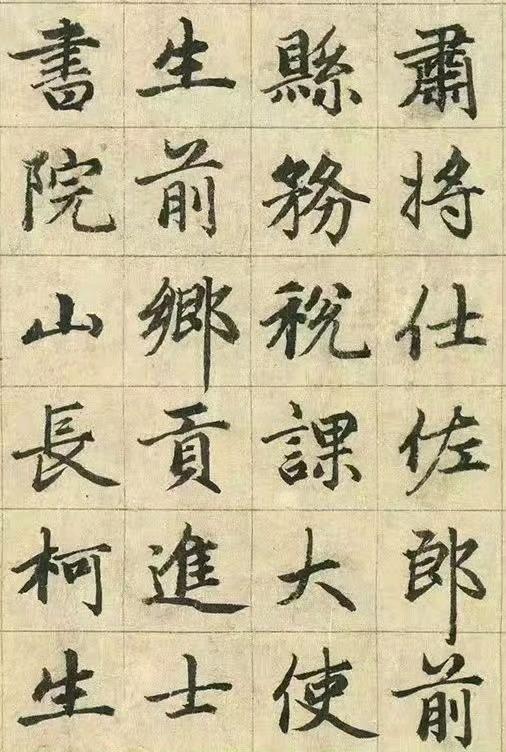 肅將仕佐郎前
縣務稅課大使
生前鄉貢進士
書院山長柯生